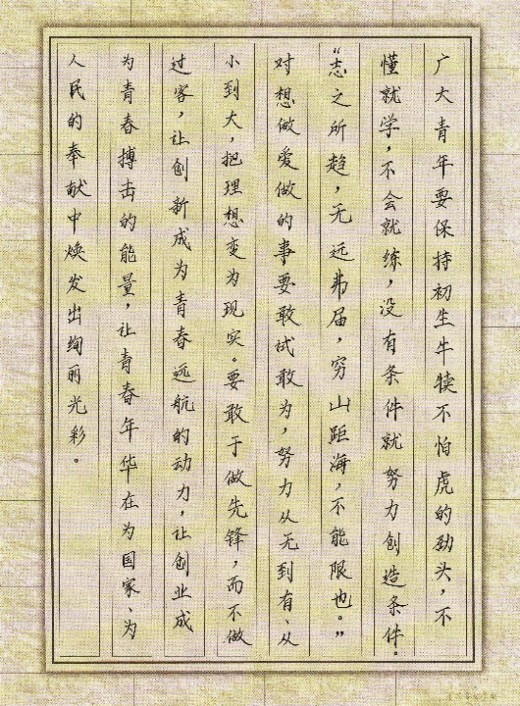 广大青年要保持初生牛犊不怕虎的劲头，不
懂就学，不会就练，没有条件就努力创造条件。
“志之所趋，无远弗届，穷山距海，不能限也。”
对想做爱做的事要敢试敢为，努力从无到有、从
小到大，把理想变为现实。要敢于做先锋，而不做
过客，让创新成为青春远航的动力，让创业成
为青春搏击的能量，让青春年华在为国家、为
人民的奉献中焕发出绚丽光彩。